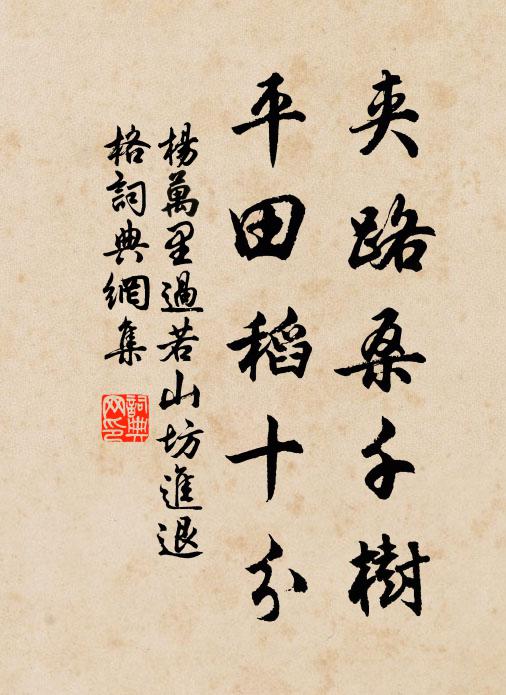 夹路桑千樹
平田稻十分
楊萬里過若山坊進退
格詞典網集
詞典网印